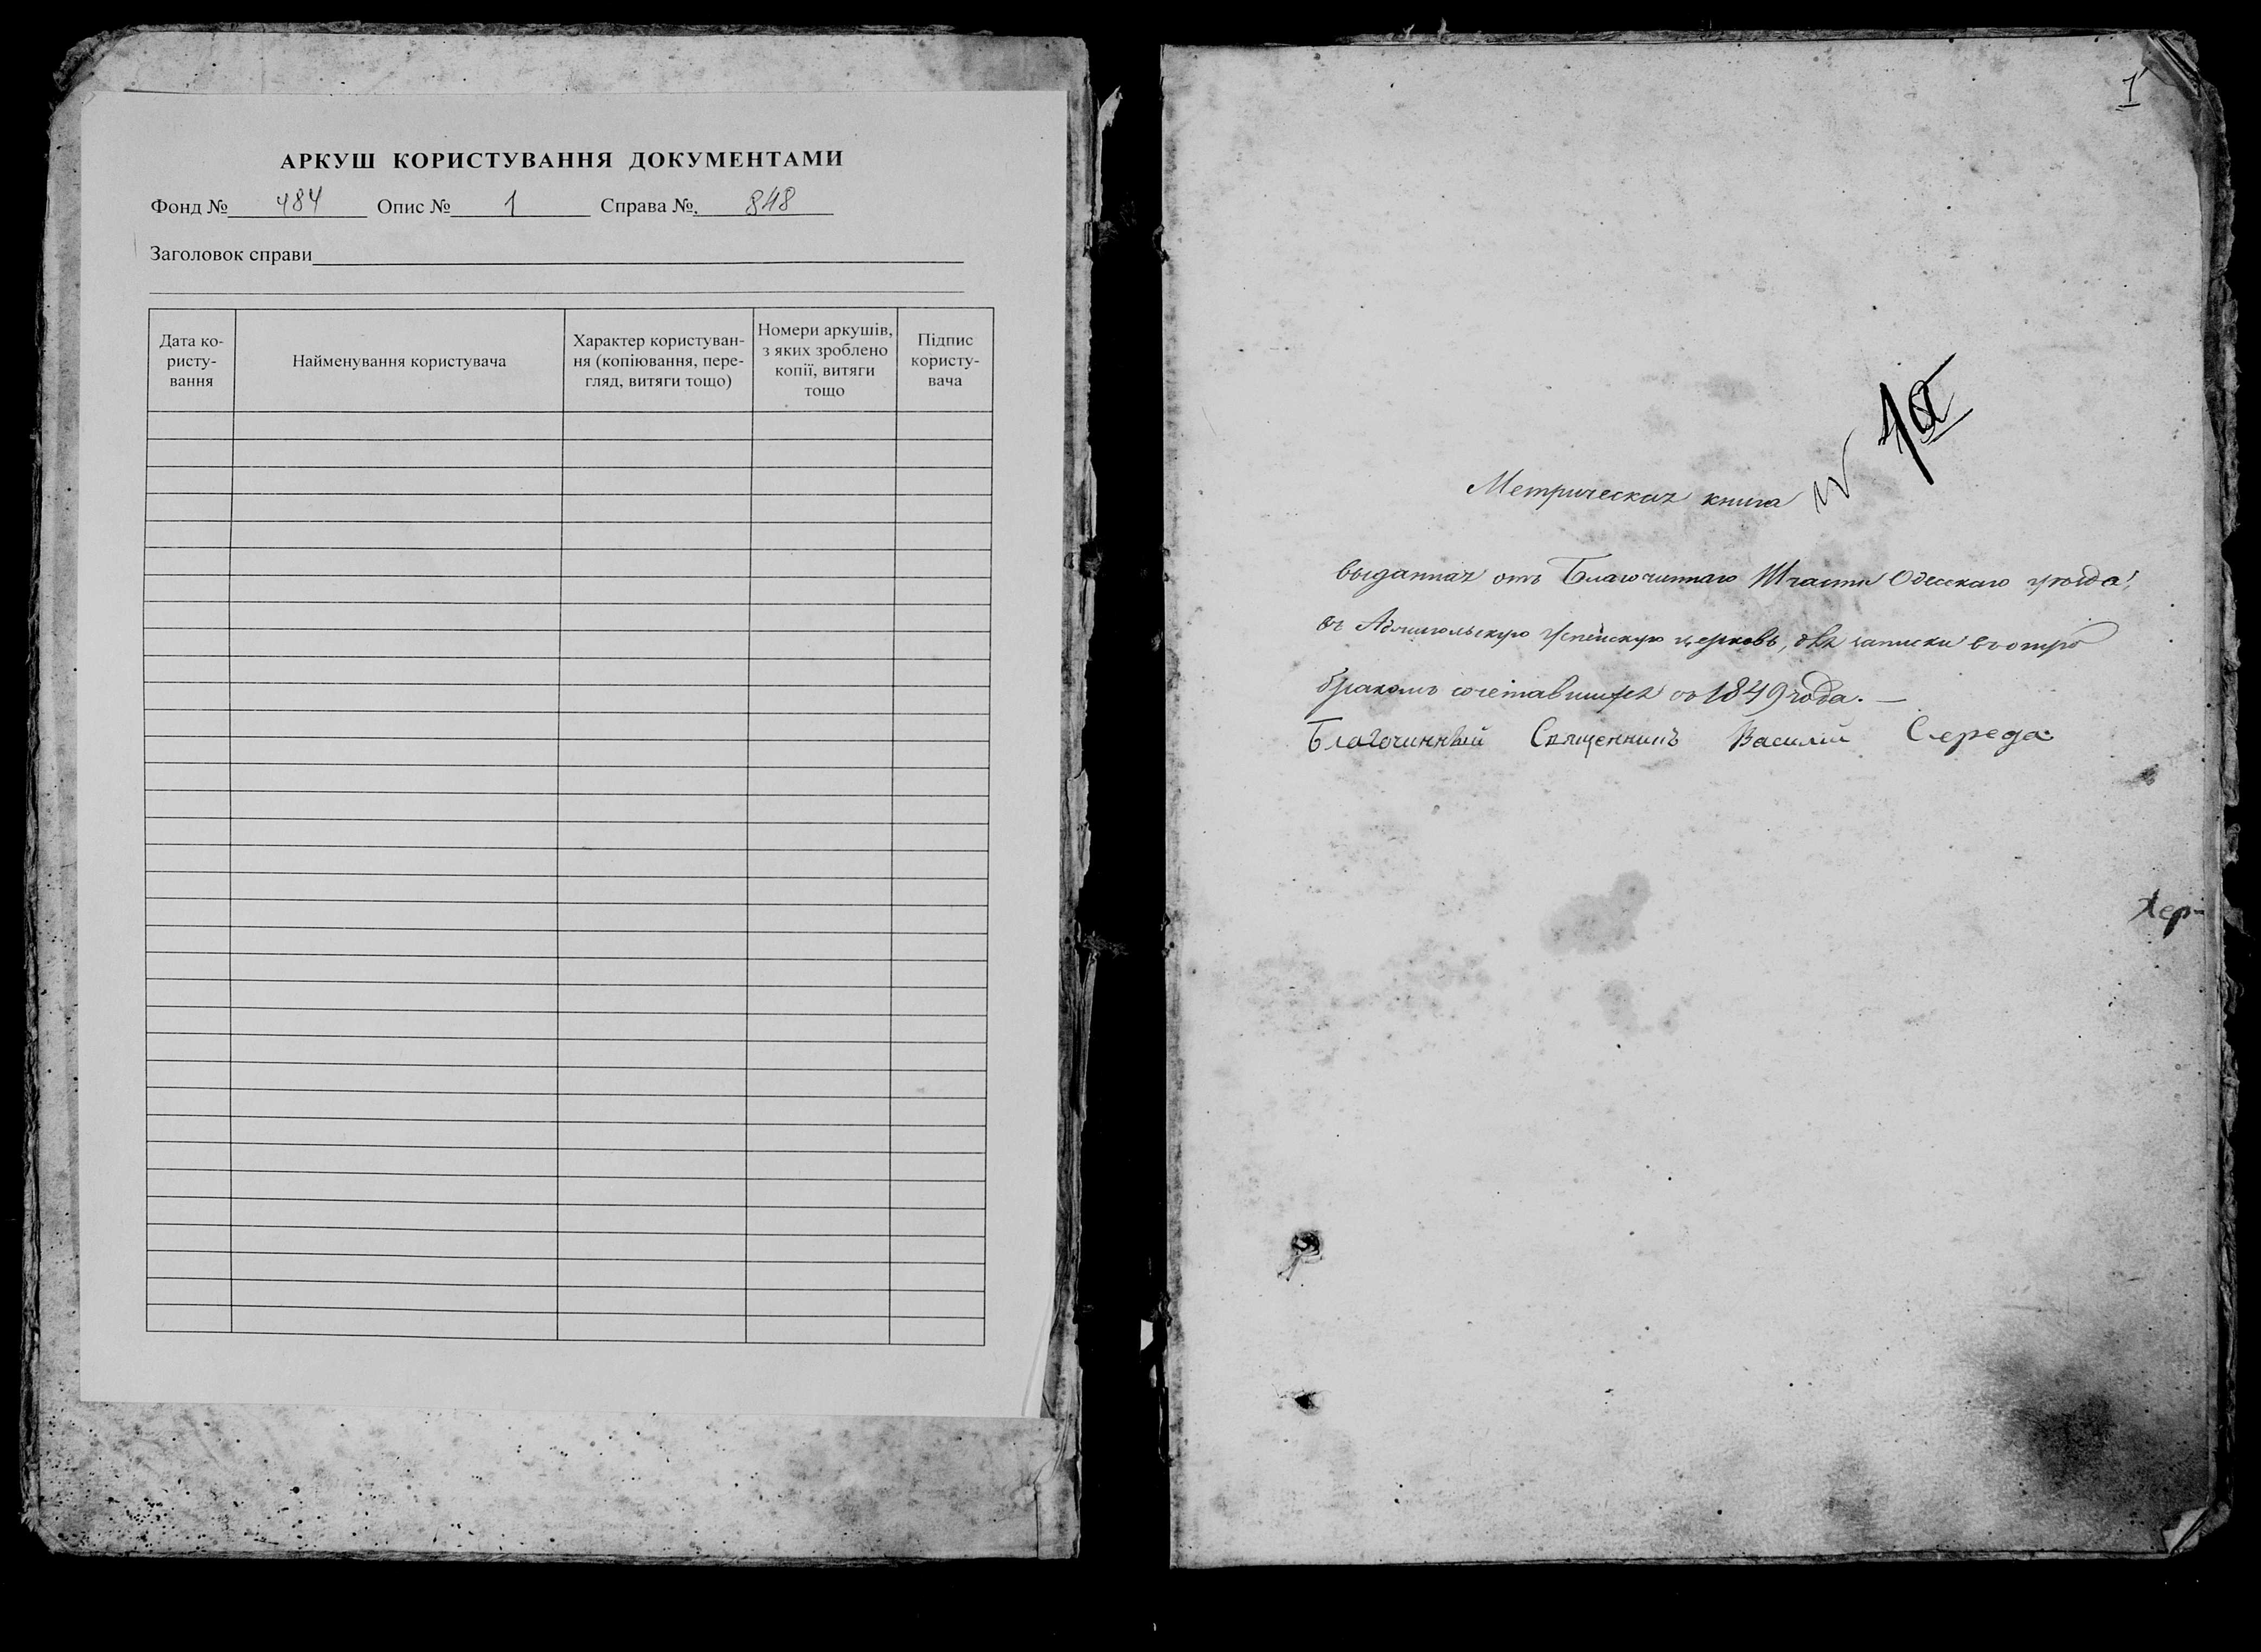 АРКУШ КОРИСТУВАННЯ ДОКУМЕНТАМИ
Фонд № 484 Опис № 1 Справа № 848
Заголовок справи
Дата ко-
ристу-
вання
Найменування користувача
Характер користуван-
ня (копіювання, пере-
гляд, витяги тощо)
Номери аркушів,
з яких зроблено
копії, витяги
тощо
Підпис
користу-
вача
1
Метрическая книга
выданная отъ Благочиннаго III части Одесскаго уезда,
въ церковь, для записки
бракомъ сочетавшихся 1849 года. —
Благочинный Священникъ Василій Середа
Хер-